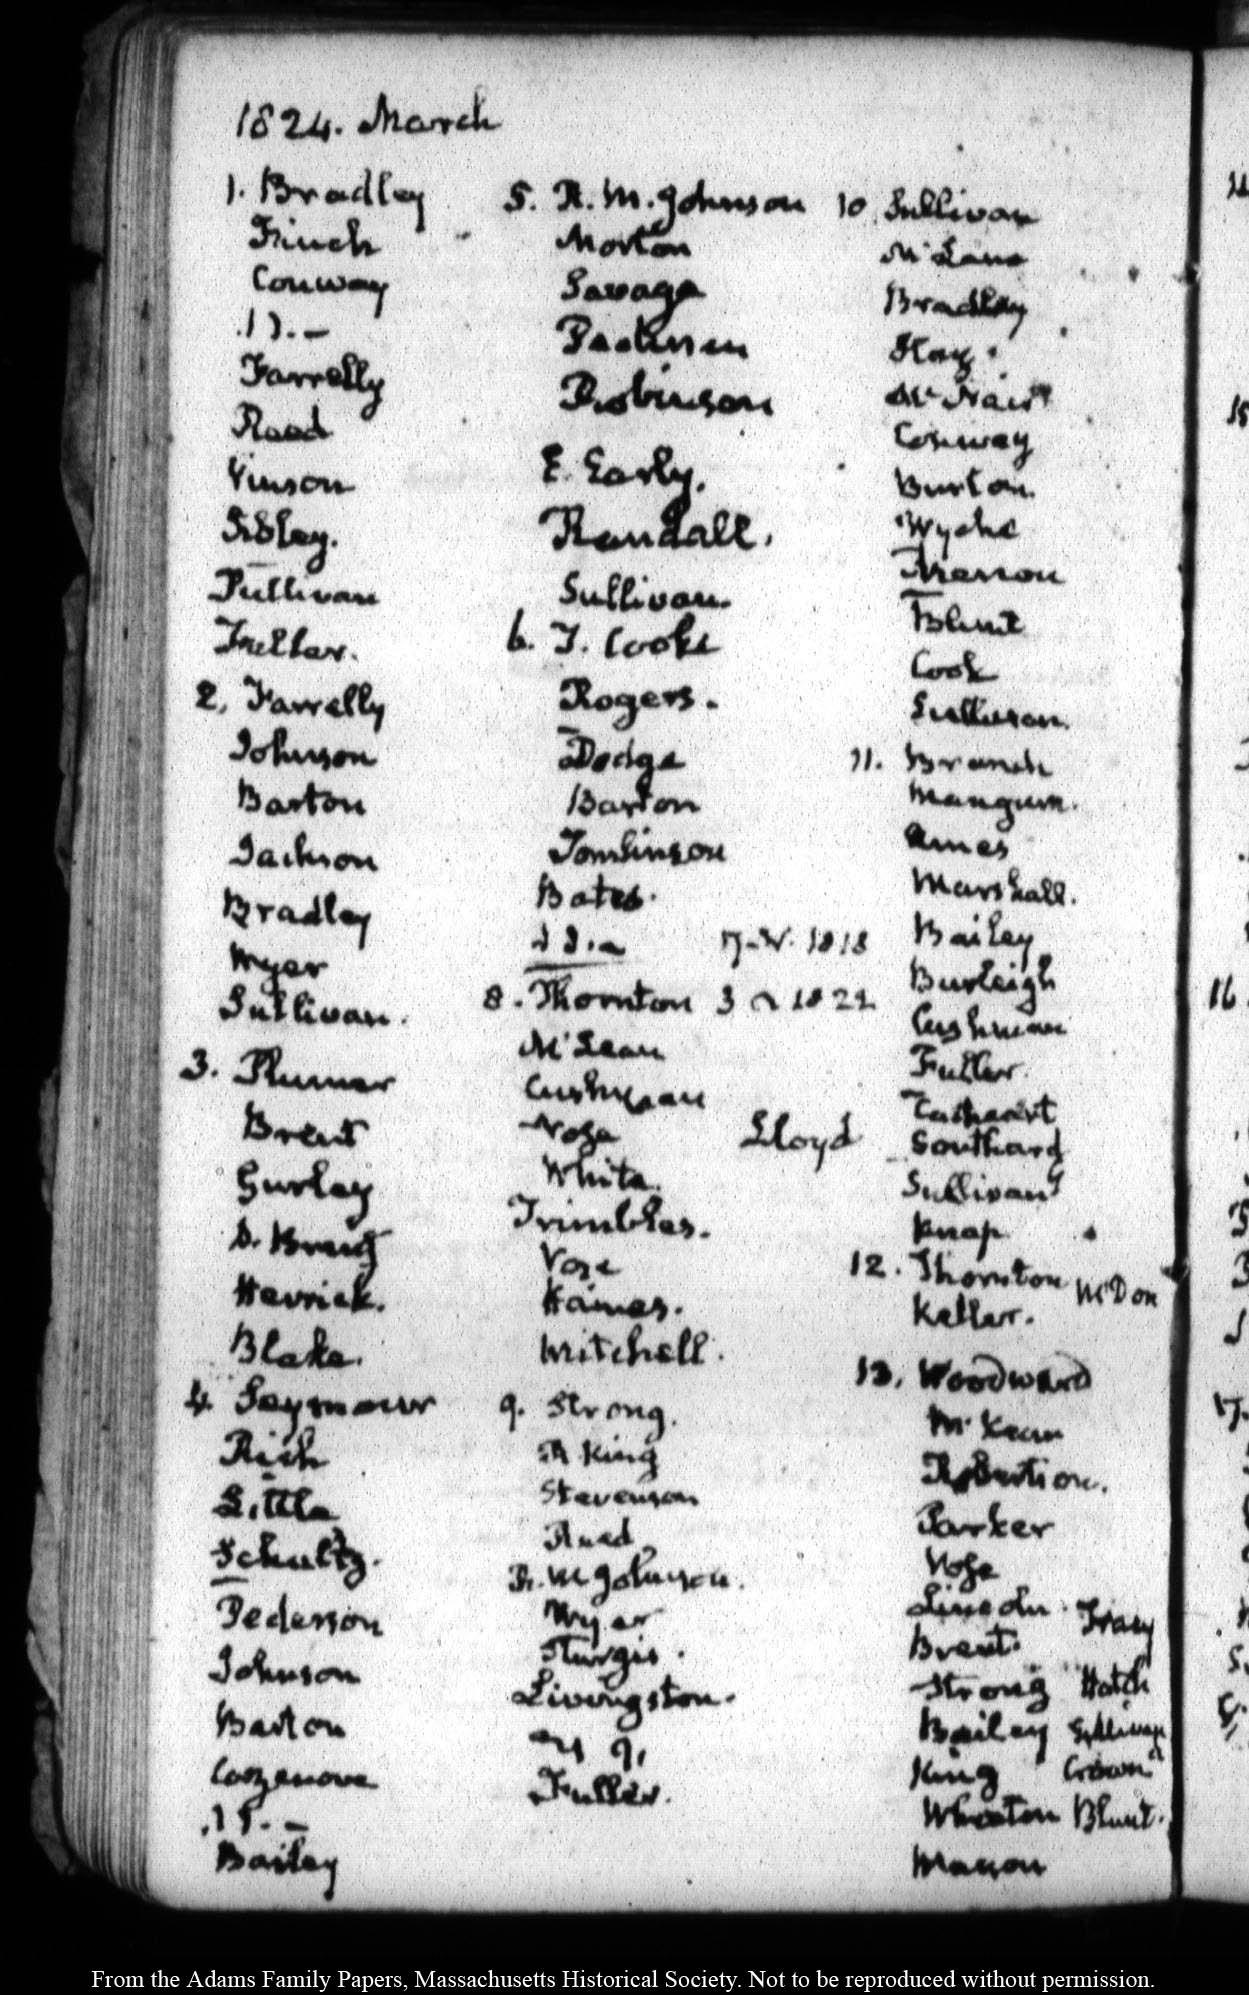 1824. March
1. Bradley
Finch
Conway
Farrelly
Reed
Vinson
Sibley.
Sullivan
Fuller.
2, Farrelly
Johnson
Barton
Jackson
Bradley
Myer
Sullivan.
3. Plumer
Brent
Gurley
Herrick.
Blake.
4. Seymour
Rich
Little
Schultz.
Pederson
Johnson
Barton
Cazenove
Bailey
5. R. M. Johnson
Morton
Savage
Robinson
E. Early.
Randall.
Sullivan.
6. J. Cooke
Rogers.
Dodge
Barton
Tomlinson
Bates.
1818
8. Thornton 3 1821
McLean
Cushman
Vose Lloyd
White.
Trimbles.
Vose
Haines.
Mitchell.
9. Strong.
R King
Stevenson
Reed
R. M Johnson.
Myer
Sturgis.
Livingston.
Fuller.
10 Sullivan
McLane
Bradley
Hay.
McNair
Conway
Burton.
Wyche
Blunt
Cook
Sullivan.
11. Branch
Mangum.
Ames
Marshall.
Bailey
Burleigh
Cushman
Fuller.
Cathcart
Southard
Sullivan
Knap
12. Thornton McDon
Keller.
13, Woodward
McKean
Robertson.
Parker
Vose
Lincoln. Tracy
Brent.
Strong Hatch
Bailey Sullivan
King
Wheaton Blunt.
Mason
From the Adams Family Papers, Massachusetts Historical Society. Not to be reproduced without permission.